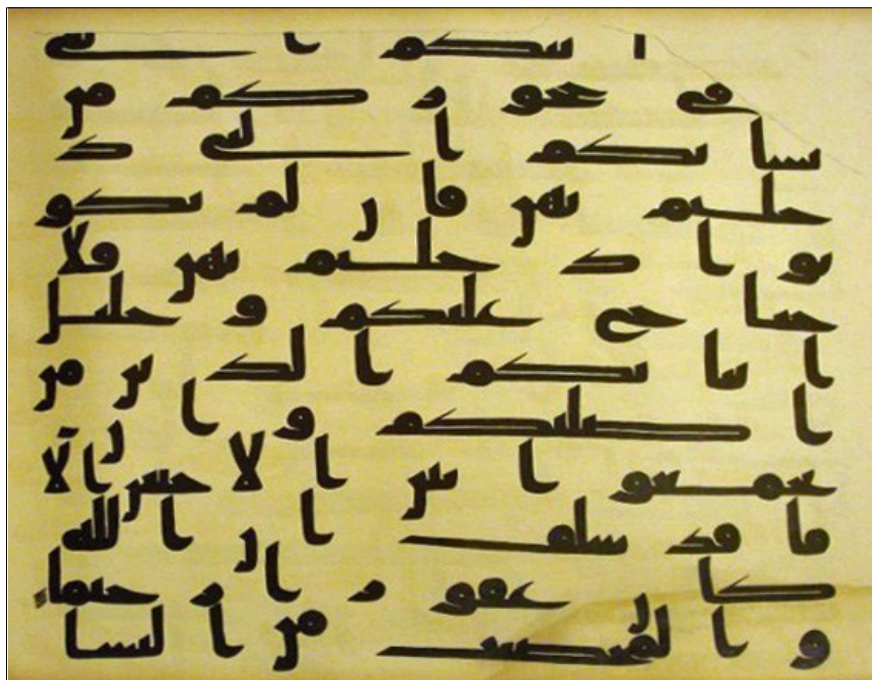 ا ئبكم التي
في حجوركم من
نسائكم التي د
خلتم بهن فإن لم تكو
نوا دخلتم بهن فلا
جناح عليكم وحلئل
أبنائكم الذين من
أصلبكم وأن
تجمعوا بين الأختين إلا
ما قد سلف إن الله
كان غفورا رحيما
والمحصنت من النسا